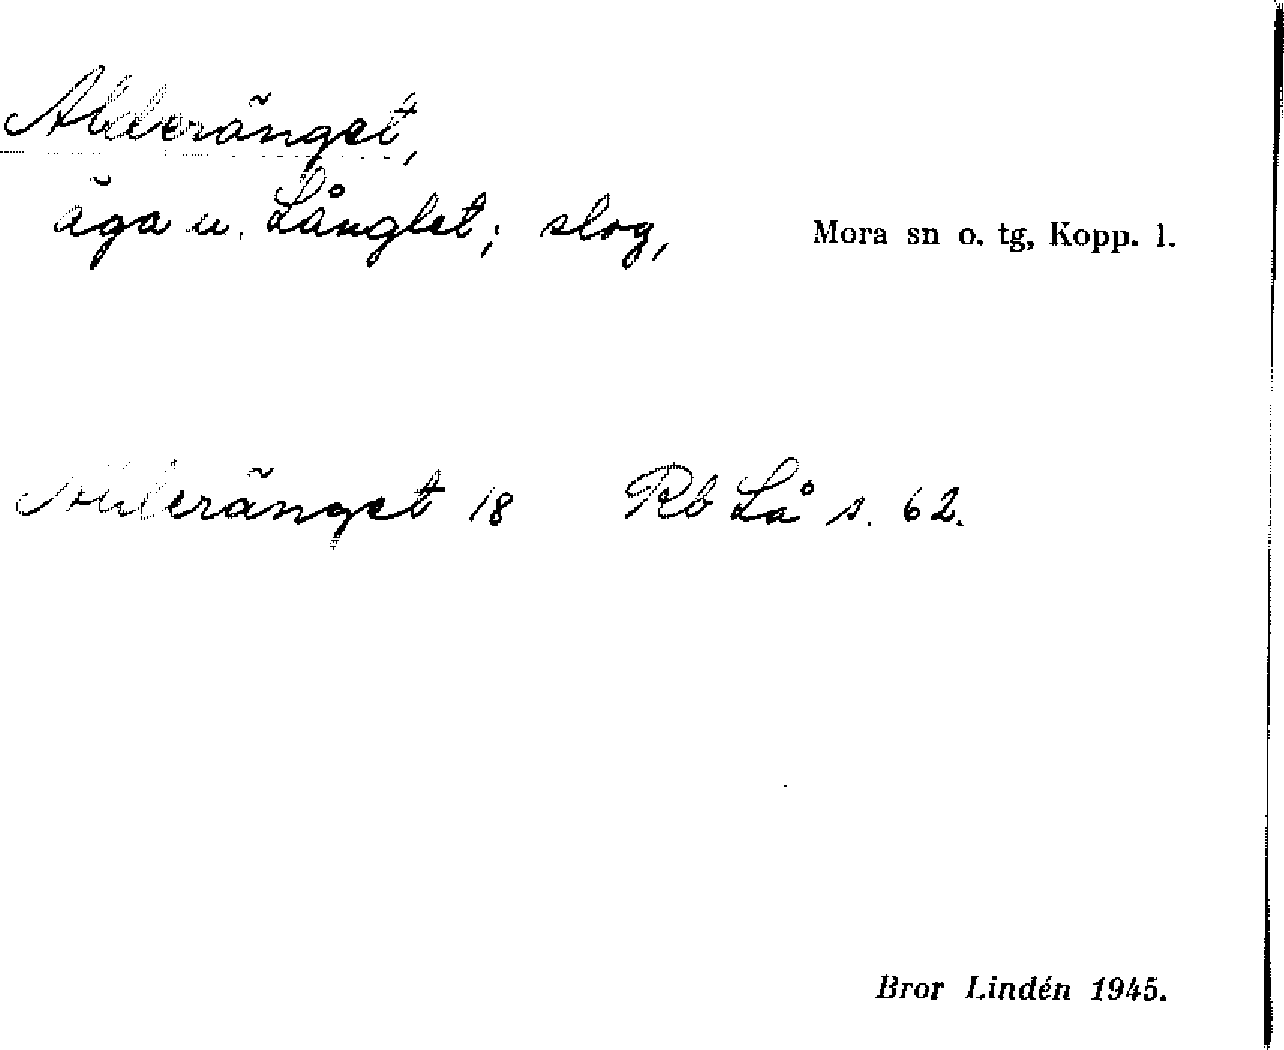 Alderänget,
äga u. Långlet; slog, Mora sn o. tg, Kopp. l.
Alderänget 18 Rb Lå s. 62.
Bror Lindén 1945.